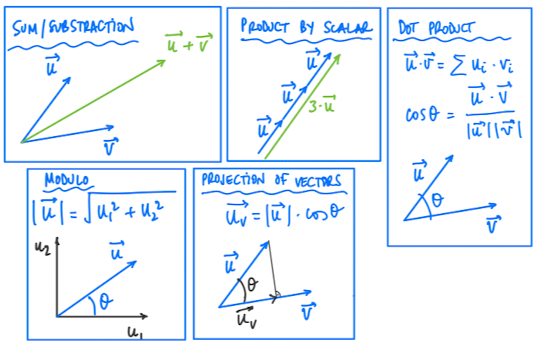 SUM/SUBSTRACTION
u⃗ + v⃗
u⃗
v⃗
PRODUCT BY SCALAR
u⃗
u⃗
u⃗
3·u⃗
DOT PRODUCT
u⃗·v⃗ = ∑ uᵢ · vᵢ
cosθ = u⃗ · v⃗ / |u⃗||v⃗|
u⃗
θ
v⃗
MODULO
|u⃗| = √u₁² + u₂²
u₂
u⃗
θ
u₁
PROJECTION OF VECTORS
u⃗ᵥ = |u⃗| · cosθ
u⃗
θ
u⃗ᵥ
v⃗